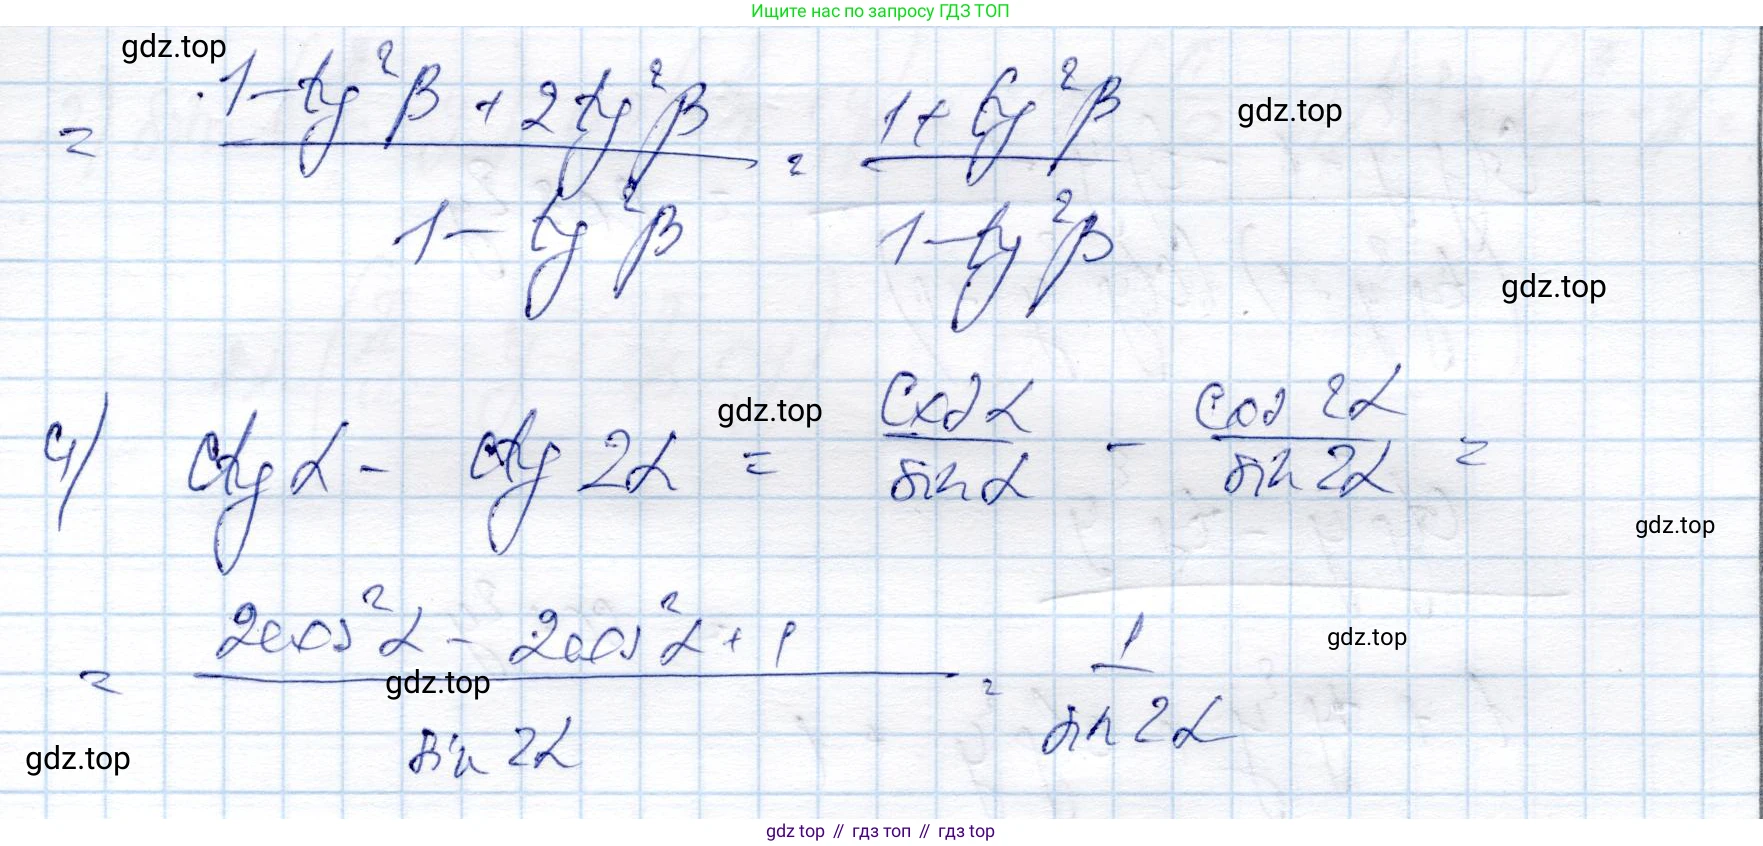 Ищите нас по запросу ГДЗ ТОП
gdz.top
= (1 - tg²β + 2tg²β) / (1 - tg²β) = (1 + tg²β) / (1 - tg²β)
gdz.top
gdz.top
gdz.top
4) ctg α - ctg 2α = cos α / sin α - cos 2α / sin 2α =
gdz.top
= (2cos²α - 2cos²α + 1) / sin 2α = 1 / sin 2α
gdz.top
gdz.top
gdz.top
gdz.top // гдз топ // гдз top